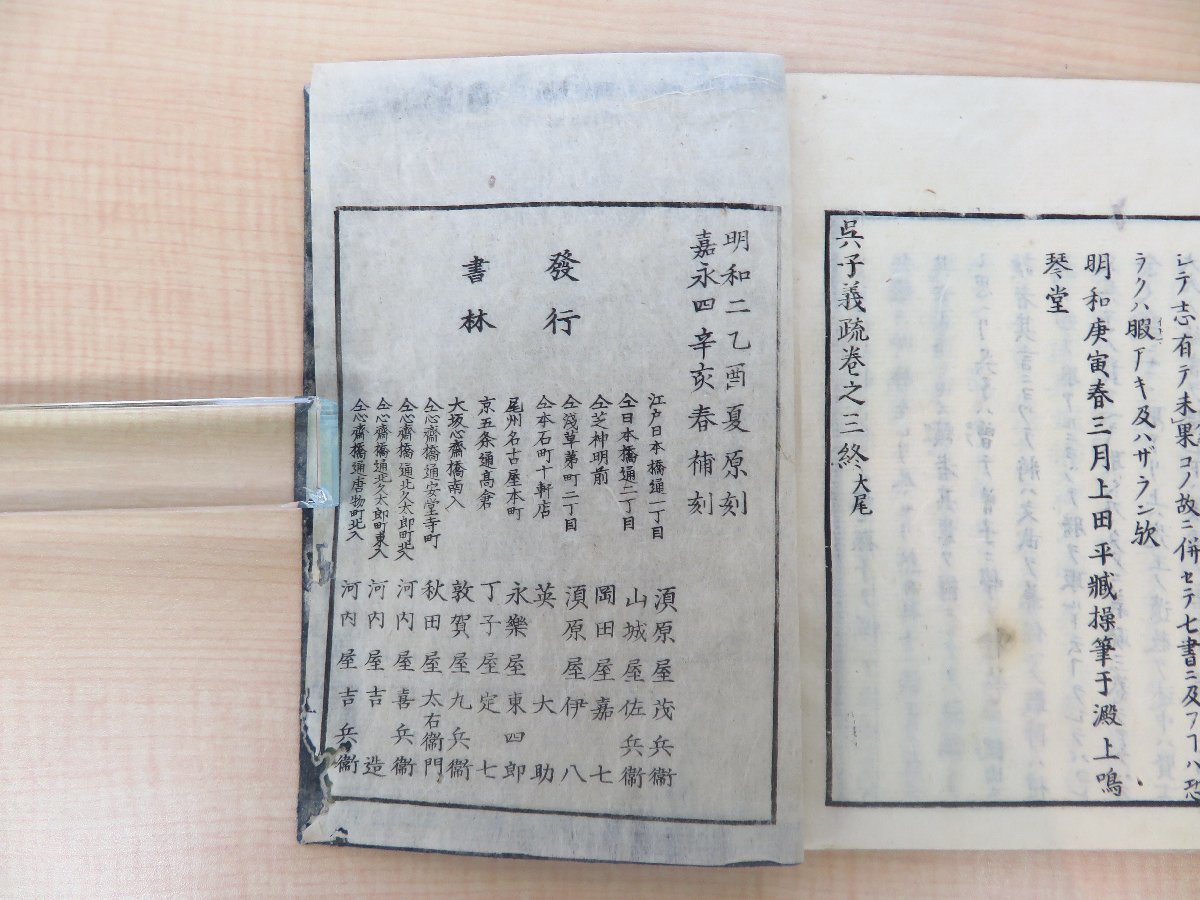 シテ志有テ未果コノ故ニ併セテ七書ニ及フヿハ恐
ラクハ暇アキ及ハザラン欤
明和庚寅春三月上田平臧操筆于澱上鳴
琴堂
呉子義疏卷之三終大尾
明和二乙酉夏原刻
嘉永四辛亥春補刻
發行
書林
江戸日本橋通一丁目 湏原屋茂兵衞
仝日本橋通二丁目 山城屋佐兵衞
仝芝神明前 岡田屋嘉七
仝淺草茅町二丁目 湏原屋伊八
仝本石町十軒店 英大助
尾州名古屋本町 永樂屋東四郎
京五条通高倉 丁子屋定七
大坂心齋橋南入 敦賀屋九兵衞
仝心齋橋通安堂寺町 秋田屋太右衞門
仝心齋橋通北久太郎町北入 河内屋喜兵衞
仝心齋橋通北久太郎町東入 河内屋吉造
仝心齋橋通唐物町北入 河内屋吉兵衞